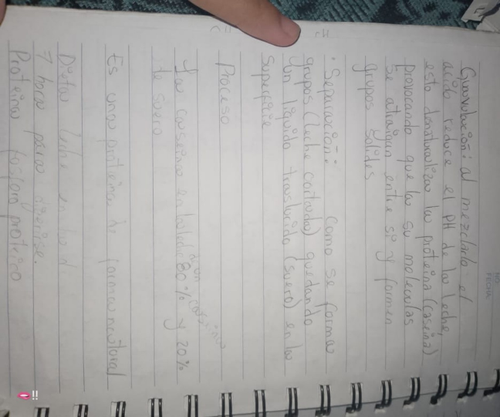 Guardulación: al mezclarla el
acido reduce el PH de la leche
esto desnaturaliza la proteina (caseina)
provocando que las su moleculas
se atraigan entre si y formen
grupos solidos
• Separación: como se forma
grupos (leche cortada) quedando
un liquido traslucido (suero) en la
superficie
Proceso
La caseina en total 80% y 20%
de suero
son caseina
Es una proteina de forma natural
Dieta leche entera
7 horas para digerirse.
Proteina fosfom proteico